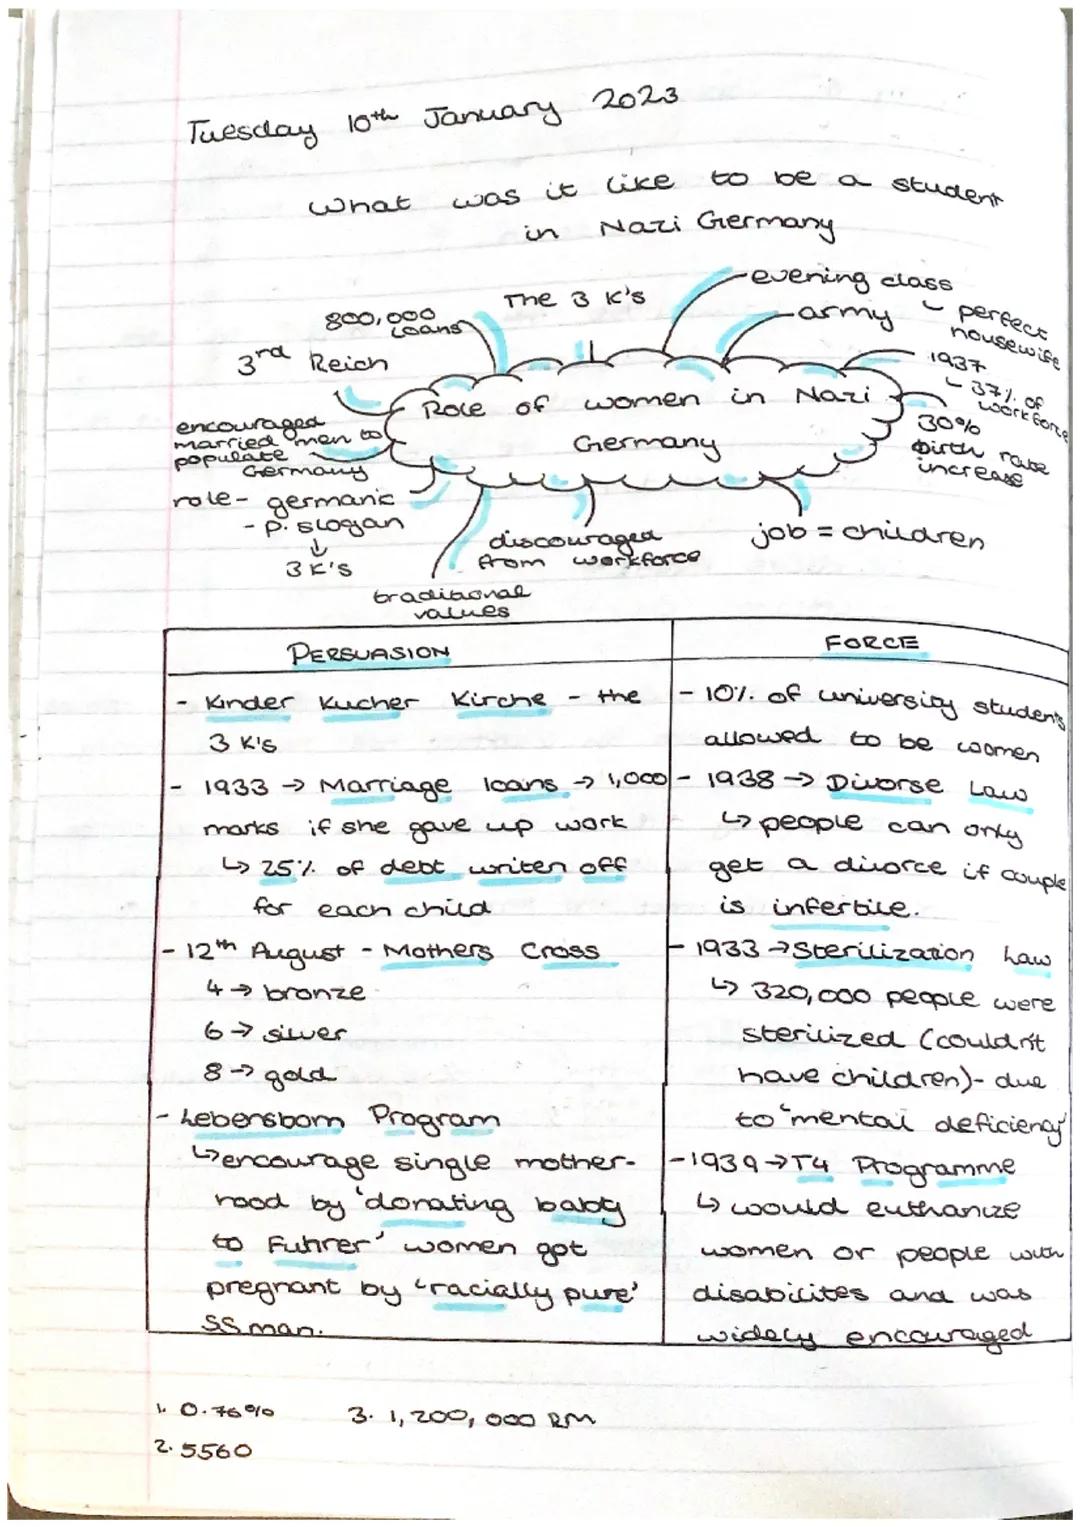 Tuesday 10th January 2023
What was it like to be a student
in Nazi Germany
The 3 K's
800,000
loans
3rd Reich
encouraged
married men to
populate
Germany
role - germanic
- p. slogan
↓
3 K's
traditional
values
discouraged
from workforce
job = children
30%
birth rate
increase
1937
↳ 37% of
workforce
army
evening class
↳ perfect
housewife
Role of women in Nazi
Germany
PERSUASION
- Kinder Kucher Kirche - the
3 K's
- 1933 → Marriage loans → 1,000
marks if she gave up work
↳ 25% of debt writen off
for each child
- 12th August - Mothers Cross
4 → bronze
6 → silver
8 → gold
- Lebensborn Program
↳ encourage single mother-
hood by 'donating baby
to Fuhrer' women got
pregnant by 'racially pure'
SS man.
FORCE
- 10% of university students
allowed to be women
- 1938 → Divorse Law
↳ people can only
get a divorce if couple
is infertile.
- 1933 → Sterilization Law
↳ 320,000 people were
sterilized (couldn't
have children) - due
to 'mental deficiency'
- 1939 → T4 Programme
↳ would euthanize
women or people with
disabilites and was
widely encouraged
1. 0.76%
2. 5560
3. 1,200,000 RM